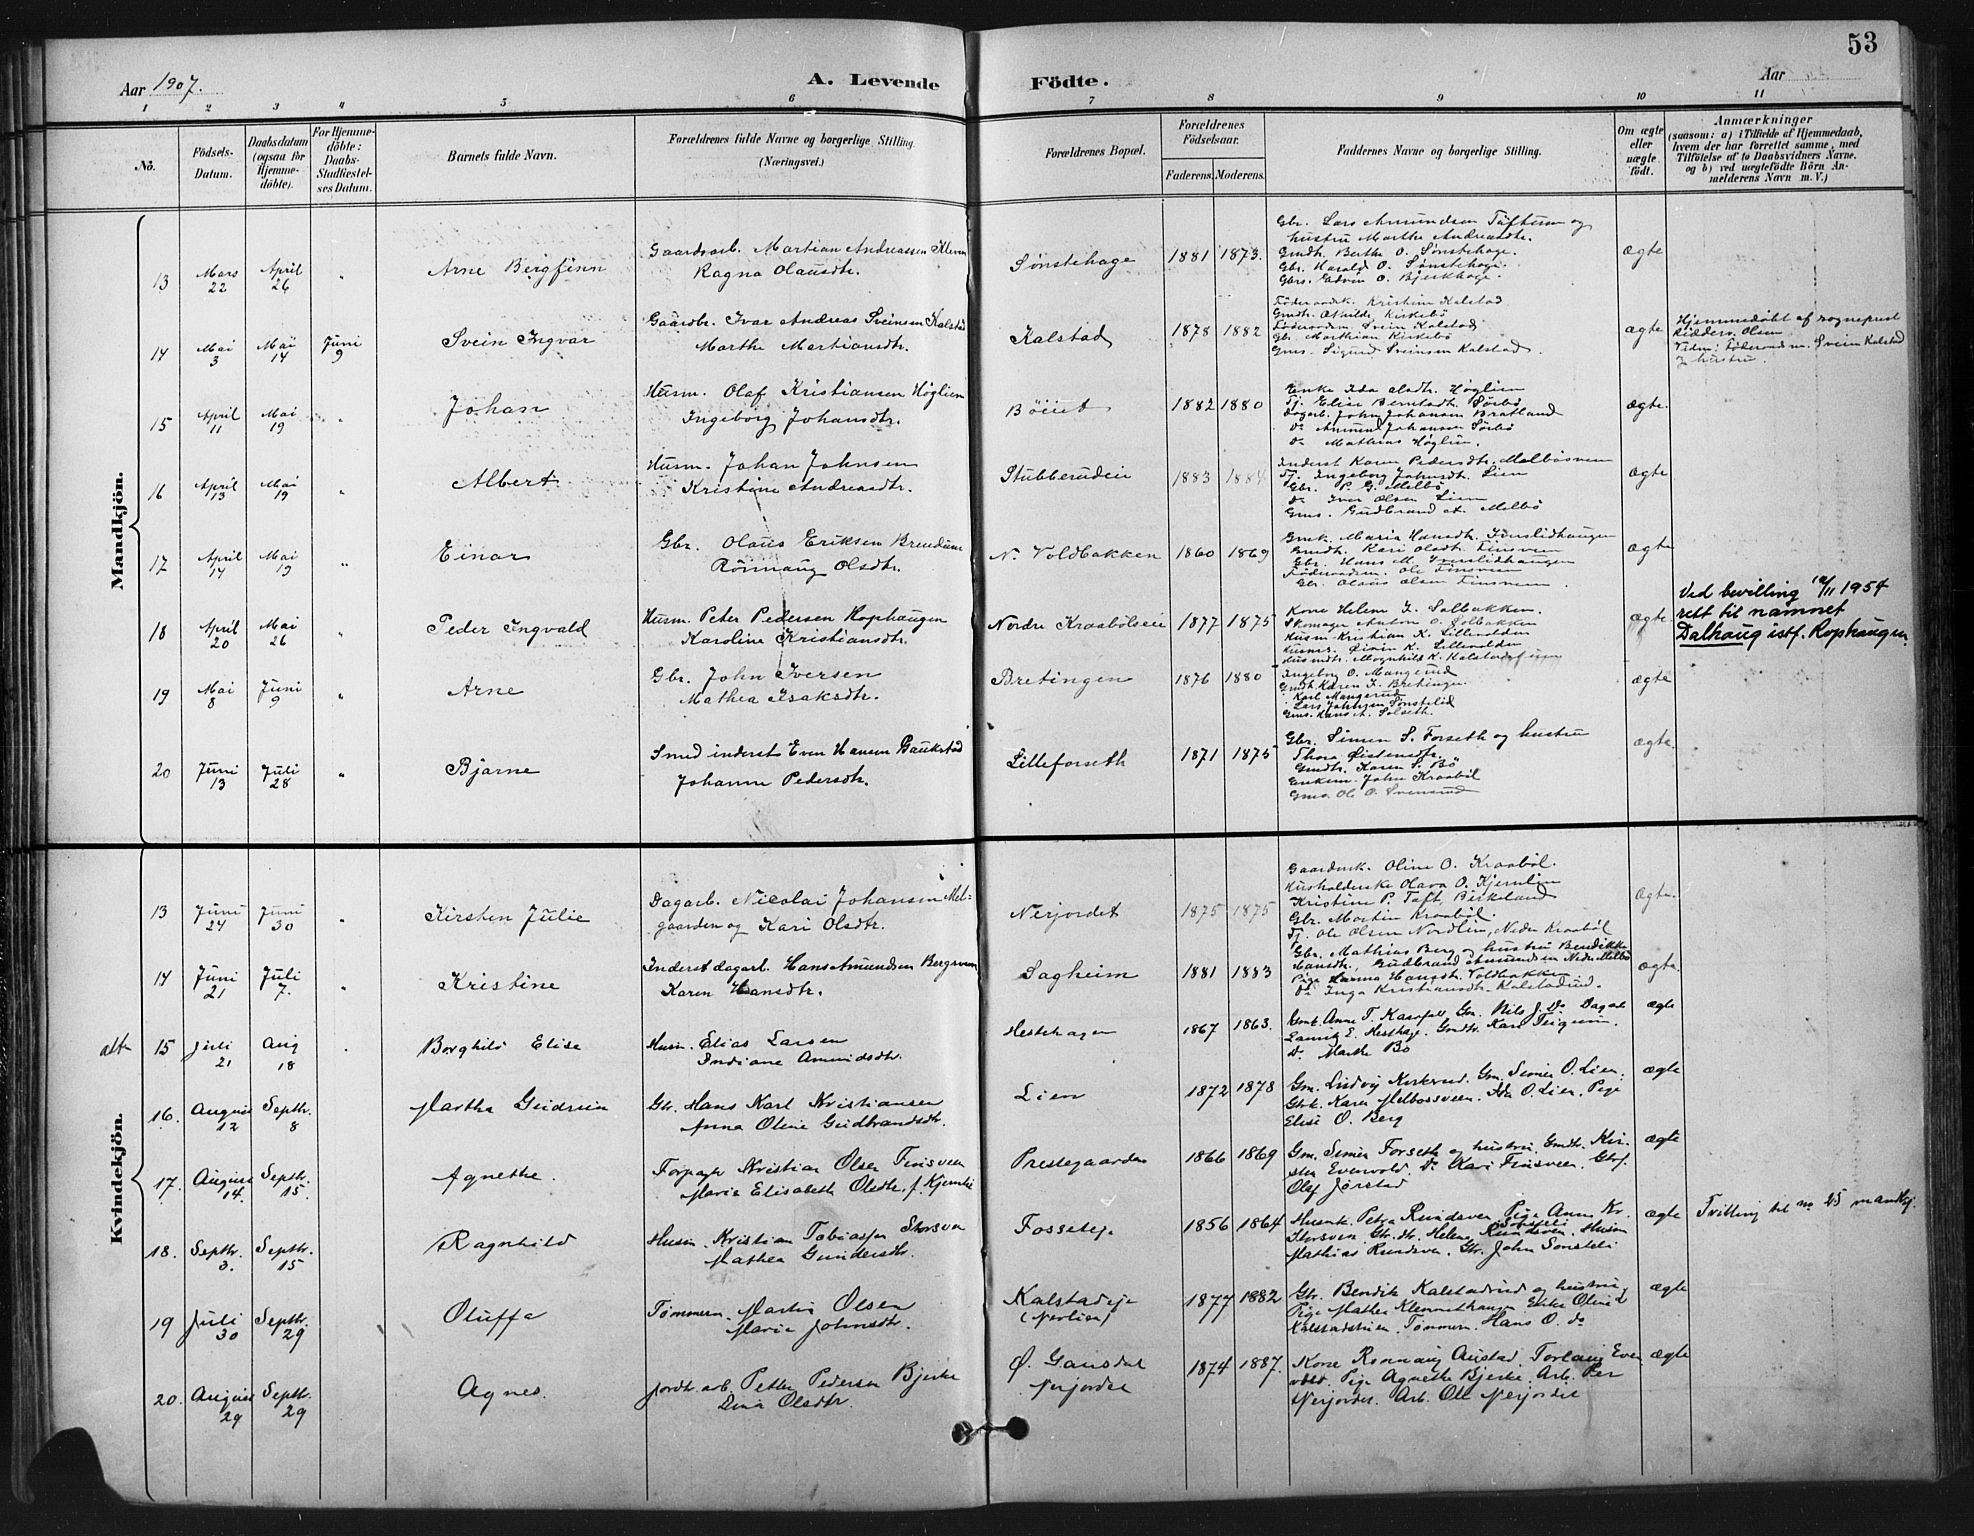 53
Aar 1907.
A. Levende Födte.
Aar
1 2 3 4 5 6 7 8 9 10 11
No.
Födsels-Datum.
Daabsdatum (ogsaa for Hjemme-döbte).
For Hjemme-döbte: Daabs-Stadfæstel-ses Datum.
Barnets fulde Navn.
Forældrenes fulde Navne og borgerlige Stilling. (Næringsvei.)
Forældrenes Bopæl.
Forældrenes Födselsaar.
Faderens. Moderens.
Faddernes Navne og borgerlige Stilling.
Om ægte eller uægte födt.
Anmærkninger
(saasom: a) i Tilfælde af Hjemmedaab, hvem der har forrettet samme, med Tilföielse af to Daabsvidners Navne. og b) ved uægtefödte Börn An-melderens Navn m. V.)
Mandkjön.
13 Mars 22 April 26 " Arne Bergfinn
Gaardsarb. Martian Andreassen Klevn
Ragna Olausdtr.
Sønstehage 1881 1873.
Gbr. Lars Amundsen Töftum og
hustru Marthe Andreasdtr.
Gmdtr. Berthe O. Sønstehage.
Gbr. Harald O. Sønstehage.
Gbrs. Edvin O. Bjerkhage.
ægte
14 Mai 3 Mai 14 Juni 9 Svein Ingvar
Gaardbr. Ivar Andreas Sveinsen Kalstad
Marthe Martiansdtr.
Kalstad 1878 1882
Föderaadsk. Kristine Kalstad
Gmdtr. Mathilde Kirkebö
Föderaadsm. Svein Kalstad
Gbr. Matthian Kirkebö
Gms. Sigurd Sveinsen Kalstad.
ægte
Hjemmedøbt af sogneprest
Ridderv. Olsen
Vidn: Föderaadsm. Svein Kalstad
& hustru.
15 April 11 Mai 19 " Johan
Husm. Olaf Kristiansen Höglien
Ingeborg Johansdtr.
Böeiet 1882 1880
Enke Ida Olsdtr. Höglien
Tj. Elise Berntsdtr. Sörbö
Dagarb. John Johansen Bratland
Do Amund Johansen Sörbö
Do Mathias Höglien.
ægte.
16 April 13 Mai 19 " Albert
Husm. Johan Johnsen
Kristine Andreasdtr.
Stubberudeie 1883 1884
Inderst Karen Pedersdtr. Melbösveen
Tj. Ingeborg Johnsdtr. Lien
Gbr. P. G. Melbö
Do Iver Olsen Lien
Gms. Gudbrand A. Melbö
ægte
17 April 14 Mai 19 " Einar
Gbr. Olaus Eriksen Brendum
Rönnaug Olsdtr.
N. Voldbakken 1860 1869
Gmk. Maria Hansdtr. Iverslidhaugen
Gmdtr. Kari Olsdtr. Finsveen
Gbr. Hans M. Iverslidhaugen
Föderaadsm. Ole Finsveen
Gbr. Olaus Olsen Finsveen.
ægte
18 April 20 Mai 26 " Peder Ingvald
Husm. Peter Pedersen Rophaugen
Karoline Kristiansdtr.
Nordre Kraabölseie 1877 1875
Kone Helene J. Solbakken.
Skomager Anton O. Solbakken
Husm. Kristian K. Lillevolden
Husmsr. Öivin K. Lillevolden
Husmdtr. Mognhild K. Kalstad
ægte.
Ved bevilling 12/11 1954
rett til namnet
Dalhaug istf. Rophaugen.
19 Mai 8 Juni 9 " Arne
Gbr. John Iversen
Mathea Isaksdtr.
Bretingen 1876 1880
Ingeborg O. Mangerud
Gmdtr. Karen J. Bretingen
Karl Mangerud
Lars Johnsen Sønstelid
Gms. Hans A. Solseth.
ægte
20 Juni 13 Juli 28 " Bjarne
Smed inderst Even Hansen Baukstad
Johanne Pedersdtr.
Lilleforseth 1871 1875
Gbr. Simen S. Forseth og hustru
Thora Östensdtr.
Gmdtr. Karen S. Bö
Enkem. John Kraaböl
Gms. Ole O. Svensrud
ægte.
Kvindekjön.
13 Juni 24 Juni 30 " Kirsten Julie
Dagarb. Nicolai Johansen Mel-
gaarden og Kari Olsdtr.
Nerjordet 1875 1875
Gaardmk. Oline O. Kraaböl.
Husholderske Olava O. Kjernlien
Kristine P. Taft, Birkeland
Gbr. Martin Kraaböl.
Tj. Ole Olsen Nordlien, Nedre Kraaböl
Ægte.
14 Juni 21 Juli 7. " Kristine
Inderst dagarb. Hans Amundsen Bergsveen
Karen Hansdtr.
Sagheim 1881 1883
Gbr. Mathias Berg og hustru Bendikke
Hansdtr., Gudbrand Amundsen Nedre Melbö
Pige Hansdtr. Voldbakken
Do Inga Kristiansdtr. Kalstadrud.
ægte.
alt 15 Juli 21 Aug 18 Borghild Elise
Husm. Elias Larsen
Indiane Amundsdtr.
Hestehagen 1867 1863.
Lauritz E. Hesthag. Gmdtr. Kari Teigum.
Do. Marthe Bö
ægte
16. August 12 Septbr. 8 Martha Gudrun
Gbr. Hans Karl Kristiansen
Anna Oline Gudbrandsdtr.
Lien 1872 1878
Gm. Ludvig Kirkerud. Gm. Simen O. Lien,
Gbrk. Karen Melbossveen. Ida O. Lien, Pige
Elise O. Berg
ægte
17. August 14. Septbr. 15. Agnethe.
Forpagter Kristian Olsen Finsveen
Marie Elisabeth Olsdtr. f. Kjernlie
Prestegaarden 1866 1869
Gm. Simen Forseth og hustru, Gmdtr. Kir-
sten Evenvold. Do Kari Finsveen. Gbrf.
Olaf Jörstad
ægte
18. Septbr. 3. Septbr. 15 Ragnhild
Husm. Kristian Tobiassen Storsveen
Mathea Gundersdtr.
Fosseteje 1856 1864
Husmk. Petra Rundsveen Pige Anne Kr.
Storsveen. Gbr.dtr. Helene Sonsteli Husm
Mathias Rundsveen, Gbr. John Sonsteli
ægte
Tvilling til no 25 mandkj.
19 Juli 30 Septbr. 29 Oluffa
Tömmerm. Martin Olsen
Maria Johnsdtr.
Kalstadeje
(Nerlien) 1877 1882
Gbr. Bendik Kalstadrud og hustru,
Pige Mathea Klemmethaugen Enke Oline
Kalstadstuen. Tömmerm. Hans O. do
ægte
20. August 29 Septbr. 29 Agnes.
Jordbr. arb. Petter Pedersen Bjerke
Lina Olsdtr.
Ø. Gausdal
Nerjordet 1874 1887.
Kone Rönnaug Austad. Torlaug Even
vold. Pige Agnethe Bjerke. Arb. Per
Nerjordet. Arb. Ole Nerjordet
ægte